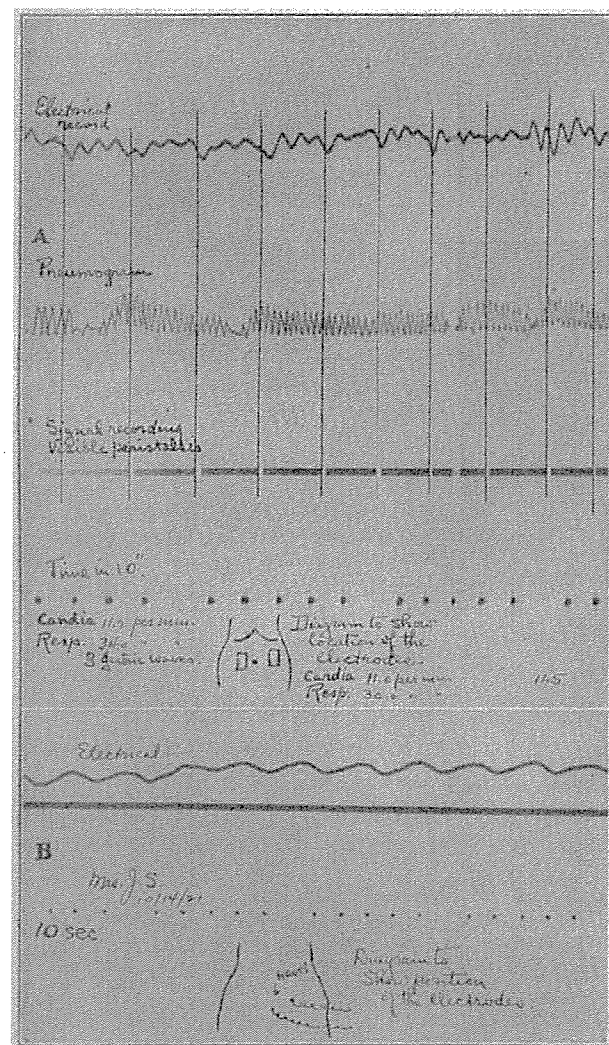 Electrical
record
A
Pneumogram
Signal recording
Visible peristalsis
Time in 10".
Cardia 11.5 per min.
Resp. 36.0 " "
3 gastric waves.
Diagram to show
location of the
Electrodes.
Cardia 11.0 per min
Resp. 36.0 " "
11.5
Electrical
B
Mrs. J S.
10/14/21
10 sec
Diagram to
Show position
of the electrodes